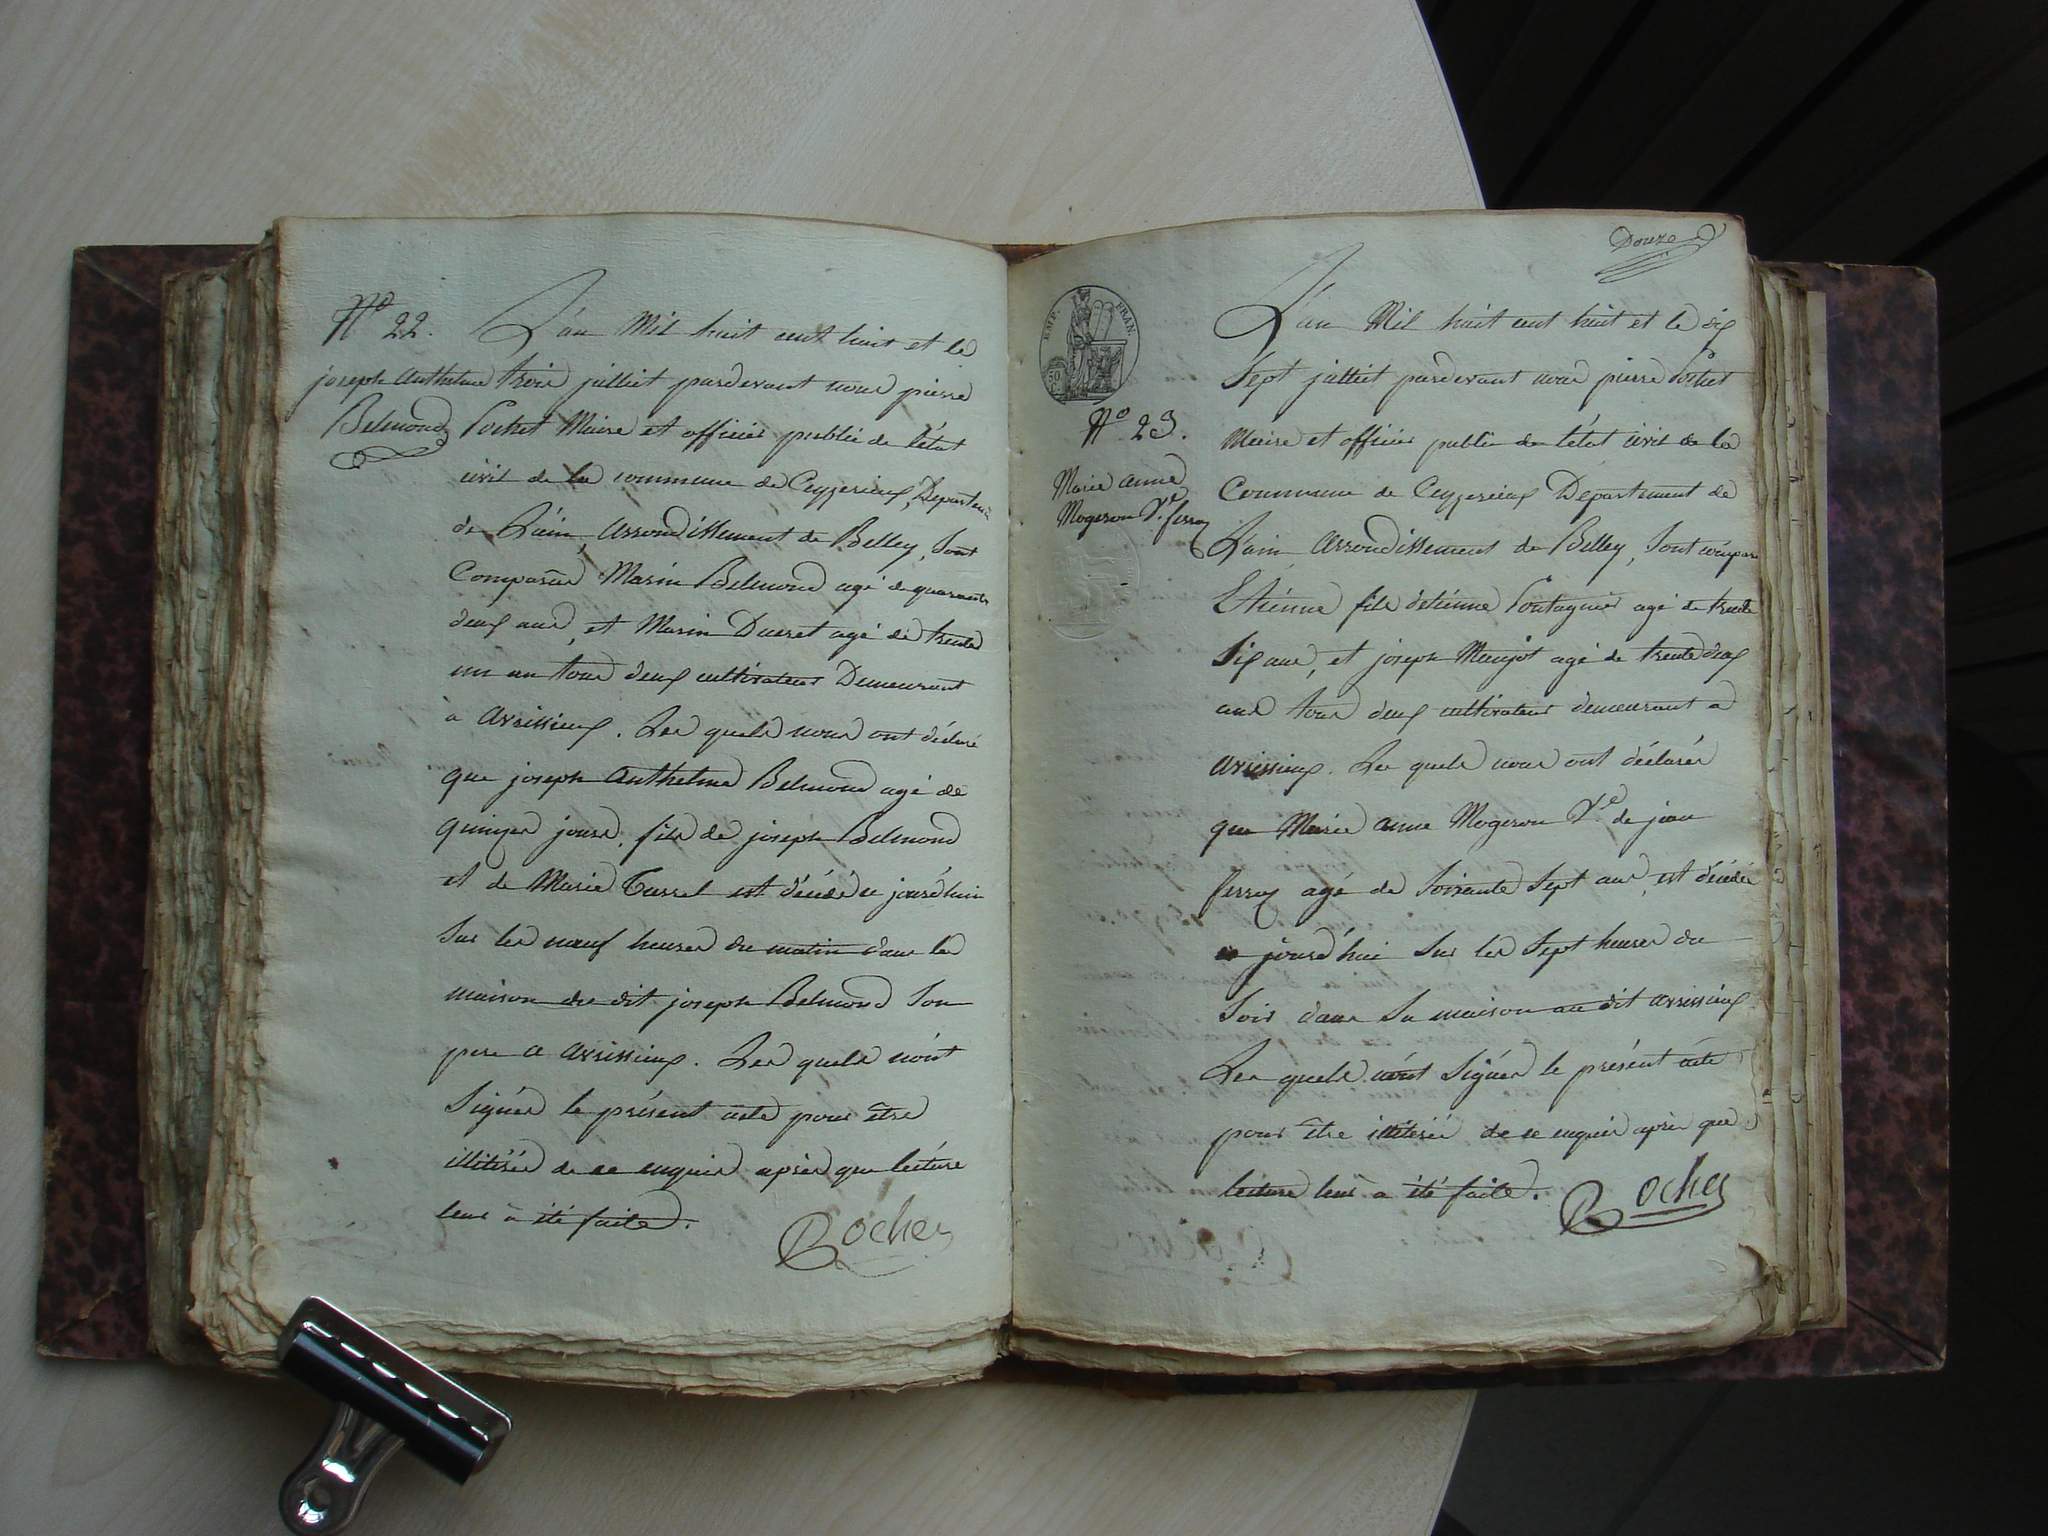 N° 22.
joseph Anthelme
Belmond
L'an Mil huit cent huit et le
trois julliet pardevant nous pierre
Rochet Maire et officier public de l'état
civil de la commune de Ceyzerieux, Departem
de L'ain, Arrondissement de Belley, sont
Comparus Marin Belmond agé de quarante
deux ans, et Marin Ducret agé de trente
un an tous deux cultivateurs Demeurant
a Avrissieux. Les quels nous ont déclaré
que joseph Anthelme Belmond agé de
quinzes jours, fils de joseph Belmond
et de Marie Curret est décédé ce jourd'huis
sur les nœuf heures du matin dans la
maison du dit joseph Belmond son
pere a avrissieux. Les quels n'ont
signés le présent acte pour être
illitérés de ce enquis après que lecture
leur à été faite.
Rochet
Douze
EMP. FRAN.
50
N° 23.
Marie anne
Mogeron Ve. ferroz
L'an Mil huit cent huit et le dix
sept julliet pardevant nous pierre Rochet
Maire et officier public de l'état civil de la
Commune de Ceyzerieux Département de
L'ain Arrondissement de Belley, sont compar
Etiénne fils d'etiénne Pontagnier agé de trente
six ans, et joseph Maujot agé de trente deux
ans tous deux cultivateurs demeurant a
avrissieux. Les quels nous ont déclarés
que Marie anne Mogeron Ve. de jean
ferroz agé de soixante sept ans, est décédée
ce jourd'hui sur les sept heures du
soir dans sa maison au dit avrissieux
Les quels n'ont signés le présent acte
pour être illitérés de ce enquis après que
lecture leur a été faite.
Rochet